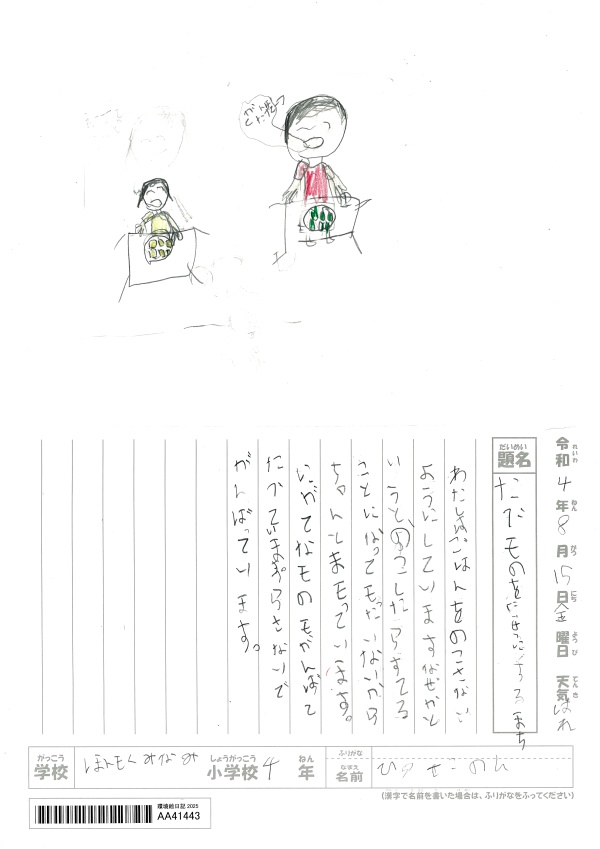 令和4年8月15日金曜日 天気はれ
れいわ ねん がつ にち ようび てんき
だいめい
題名
たべものをたいせつにするまち
わたしはごはんをのこさない
ようにしていますなぜかと
いうとのこしたらすてる
ことになってもったいないから
ちゃんとまもっています。
にがてなものもがんばって
たべています。
がんばっています。
がっこう
学校
ほんもくみなみ
しょうがっこう
小学校
4
ねん
年
ふりがな
なまえ
名前
(漢字で名前を書いた場合は、ふりがなをふってください)
環境絵日記 2025
AA41443